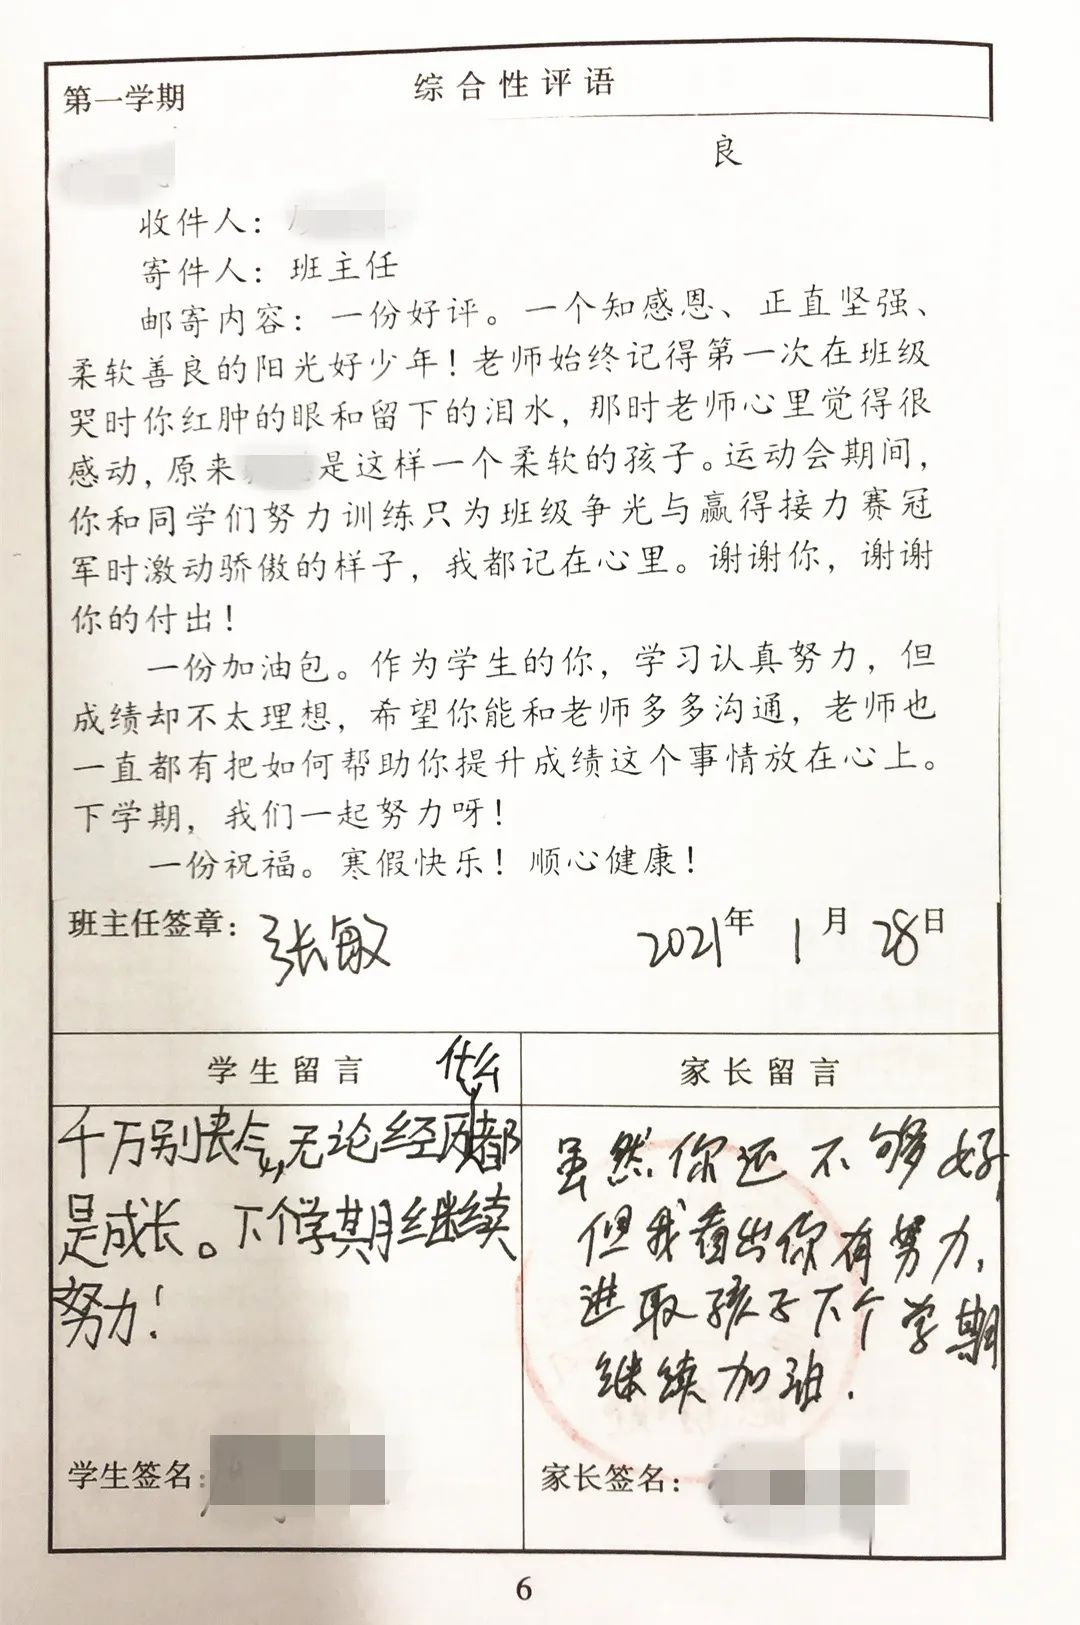 第一学期
综合性评语
良
收件人：
寄件人：班主任
邮寄内容：一份好评。一个知感恩、正直坚强、
柔软善良的阳光好少年！老师始终记得第一次在班级
哭时你红肿的眼和留下的泪水，那时老师心里觉得很
感动，原来 是这样一个柔软的孩子。运动会期间，
你和同学们努力训练只为班级争光与赢得接力赛冠
军时激动骄傲的样子，我都记在心里。谢谢你，谢谢
你的付出！
一份加油包。作为学生的你，学习认真努力，但
成绩却不太理想，希望你能和老师多多沟通，老师也
一直都有把如何帮助你提升成绩这个事情放在心上。
下学期，我们一起努力呀！
一份祝福。寒假快乐！顺心健康！
班主任签章：张敏 2021年1月28日
学生留言
什么
千万别丧气，无论经历都
是成长。下个学期继续
努力！
学生签名：
家长留言
虽然你还不够好
但我看出你有努力、
进取孩子下个学期
继续加油.
家长签名：
6